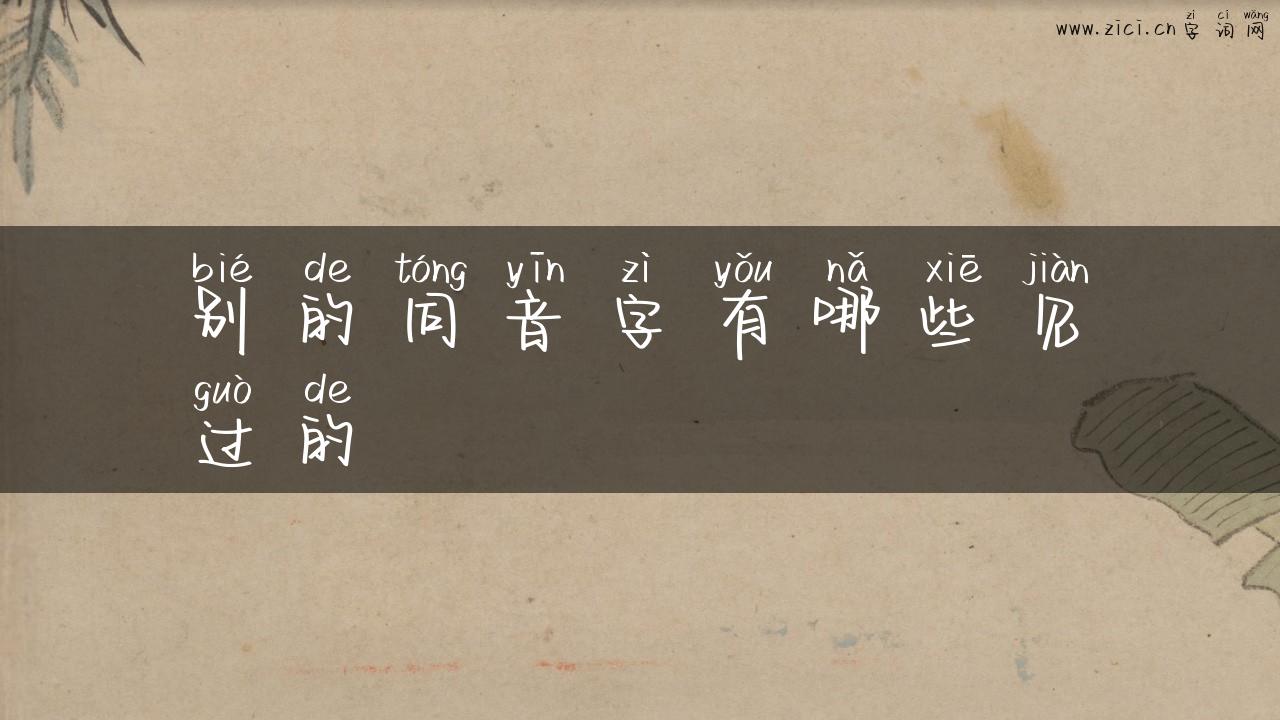 zì cí wǎng
www.zici.cn字词网
bié de tóng yīn zì yǒu nǎ xiē jiàn
别的同音字有哪些见
guò de
过的